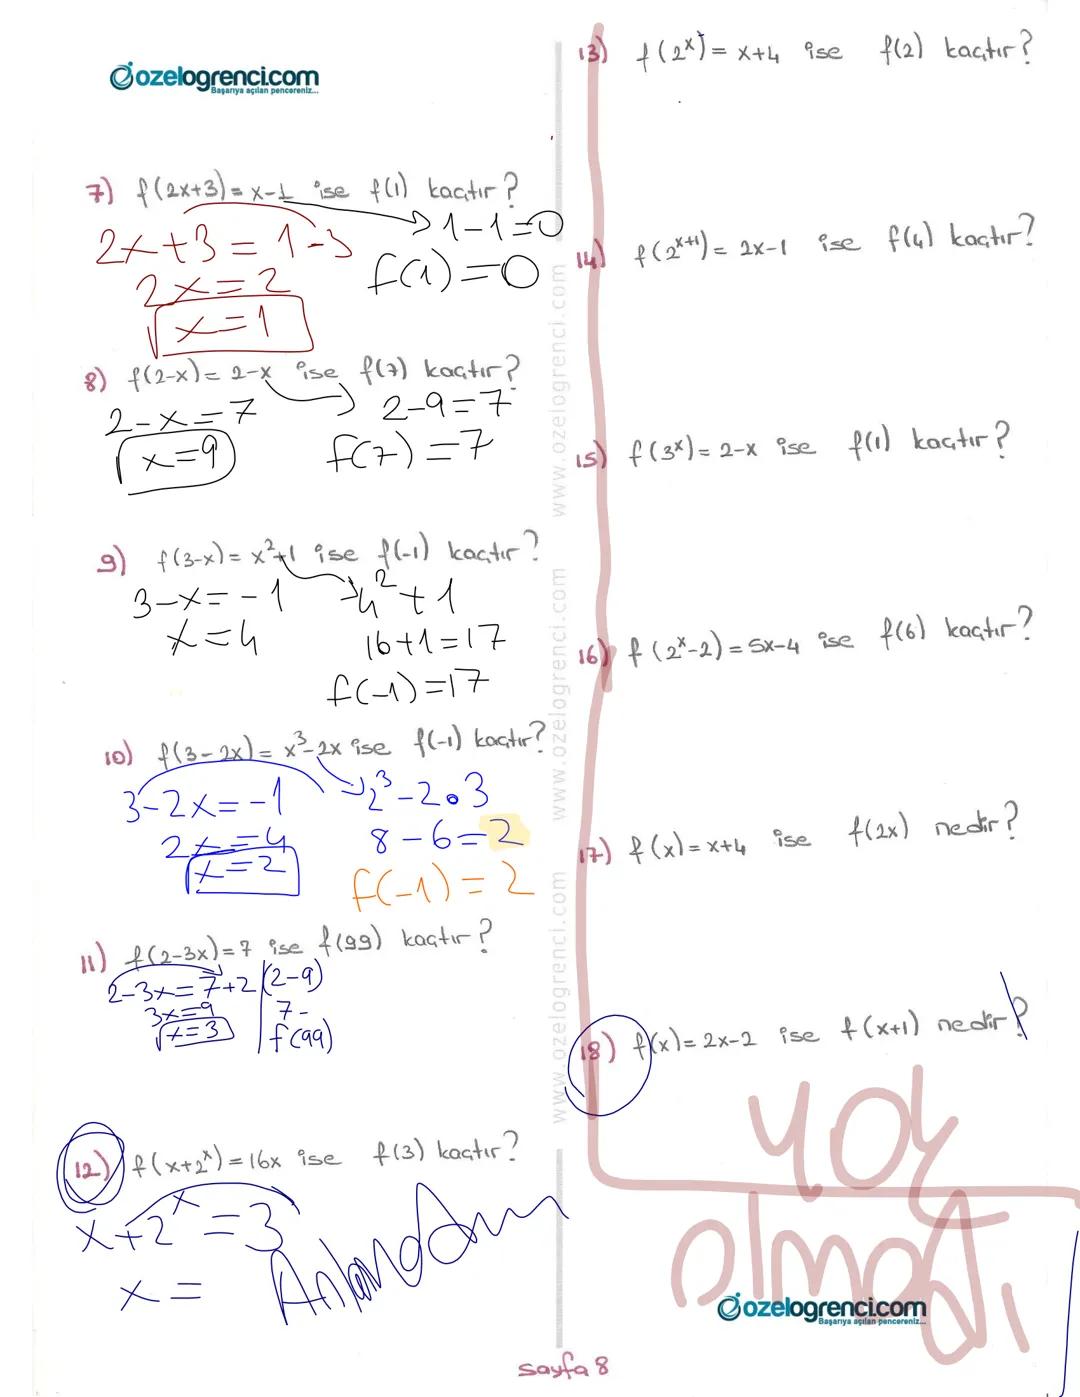 ozelogrenci.com
Başarıya açılan pencereniz...
7) f(2x+3)=x-1 ise f(1) kaçtır?
2x+3=1-3
2x=2
x=1
1-1=0
f(1)=0
8) f(2-x)=2-x ise f(7) kaçtır?
2-x=7
x=9
2-9=7
f(7)=7
9) f(3-x)=x²+1 ise f(-1) kaçtır?
3-x=-1
x=4
4²+1
16+1=17
f(-1)=17
10) f(3-2x)=x³-2x ise f(-1) kaçtır?
3-2x=-1
2x=4
x=2
2³-2•3
8-6=2
f(-1)=2
11) f(2-3x)=7 ise f(99) kaçtır?
2-3x=7+2
3x=9
x=3
(2-9)
7-
f(99)
12) f(x+2ˣ)=16x ise f(3) kaçtır?
x+2ˣ=3
x=
www.ozelogrenci.com www.ozelogrenci.com www.ozelogrenci.com
13) f(2ˣ)=x+4 ise f(2) kaçtır?
14) f(2ˣ⁺¹)=2x-1 ise f(4) kaçtır?
15) f(3ˣ)=2-x ise f(1) kaçtır?
16) f(2ˣ-2)=5x-4 ise f(6) kaçtır?
17) f(x)=x+4 ise f(2x) nedir?
18) f(x)=2x-2 ise f(x+1) nedir?
olmadı
ozelogrenci.com
Başarıya açılan pencereniz...
sayfa 8